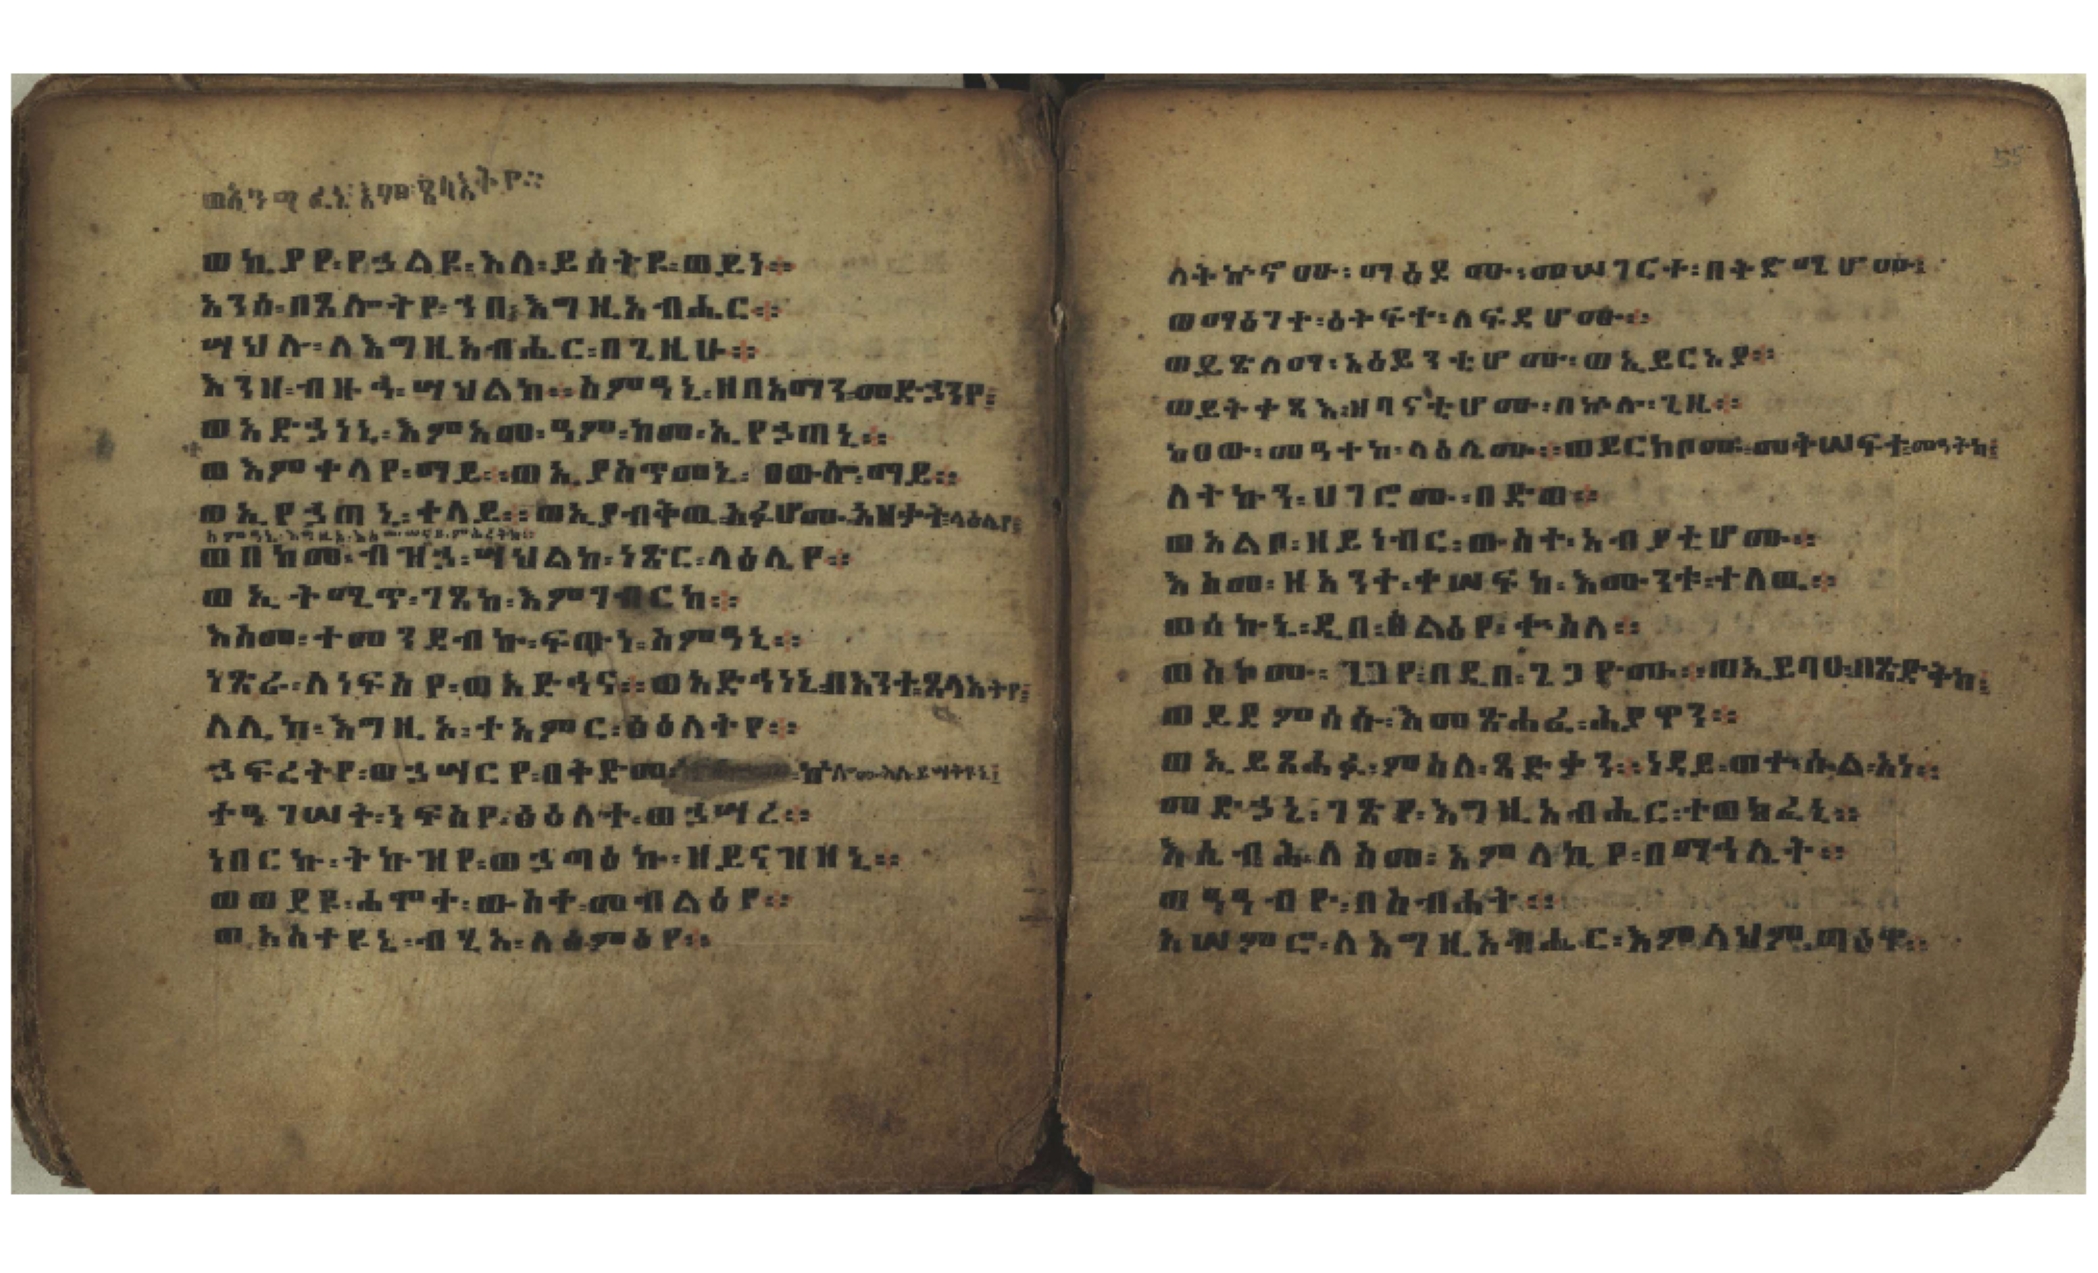 ወአንግፈኒ፡እምጸላእትየ።
ወኪያየ፡የኃልዩ፡እለ፡ይሰትዩ፡ወይነ።
አንሰ፡በጸሎትየ፡ኀበ፡እግዚአብሔር።
ሣህሉ፡ለእግዚአብሔር፡በጊዜሁ።
እንዘ፡ብዙኅ፡ሣህልከ።ስምዓኒ፡ዘበአማን፡መድኃንየ፤
ወአድኃነኒ፡እምአመ፡ዓም፡ከመ፡ኢየኃጠኒ።
ወእምተላየ፡ማይ።ወኢያስጥመኒ፡ዐውሎ፡ማይ።
ወኢየኃጠኒ፡ተላይ።ወኢያብቅዉ፡አፉሆሙ፡አዘቃት፡ላዕሌየ፤
ስምዓኒ፡እግዚኦ፡እስመ፡ሠናይ፡ምሕረትከ።
ወበከመ፡ብዝኃ፡ሣህልከ፡ነጽር፡ላዕሌየ።
ወኢትሚጥ፡ገጸከ፡እምገብርከ።
እስመ፡ተመንደብኩ፡ፍጡነ፡ስምዓኒ።
ነጽራ፡ለነፍስየ፡ወአድኅና።ወአድኅነኒ፡በእንተ፡ጸላእትየ፤
ለሊከ፡እግዚኦ፡ተአምር፡ፅዕለትየ።
ኃፍረትየ፡ወኃሣርየ፡በቅድመ፡ኵሎሙ፡እለ፡ይሣቅዩኒ፤
ተዓገሠት፡ነፍስየ፡ፅዕለተ፡ወኃሣረ።
ነበርኩ፡ትኩዝየ፡ወኃጣዕኩ፡ዘይናዝዘኒ።
ወወደዩ፡ሐሞተ፡ውስተ፡መብልዕየ።
ወአስተዩኒ፡ብሂአ፡ለፅምዕየ።
ለትኩኖሙ፡ማዕዶሙ፡መሠገርተ፡በቅድሜሆሙ፤
ወማዕገተ፡ዕቅፍተ፡ለፍዳሆሙ።
ወይጽለማ፡አዕይንቲሆሙ፡ወኢይርአያ።
ወይትቀጻእ፡ዘባናቲሆሙ፡በኵሉ፡ጊዜ።
ከዐው፡መዓተከ፡ላዕሌሙ።ወይርከቦሙ፡መቅሠፍተ፡መዓትከ፤
ለትኩን፡ሀገሮሙ፡በድወ።
ወአልቦ፡ዘይነብር፡ውስተ፡አብያቲሆሙ።
እስመ፡ዘአንተ፡ቀሠፍከ፡እሙንቱ፡ተለዉ።
ወሰኩኒ፡ዲበ፡ፀልዕየ፡ቍስለ።
ወስኮሙ፡ጌጋየ፡በዲበ፡ጌጋዮሙ።ወኢይባዑ፡በጽድቅከ፤
ወይደምሰሱ፡እመጽሐፈ፡ሕያዋን።
ወኢይጸሐፉ፡ምስለ፡ጻድቃን።ነዳይ፡ወቍሱል፡አነ።
መድኃኒ፡ገጽየ፡እግዚአብሔር፡ተወክፈኒ።
እሴብሕ፡ለስመ፡አምላኪየ፡በማኅሌት።
ወዓዓብዮ፡በስብሐት።
አሠምሮ፡ለእግዚአብሔር፡እምላህም፡ጣዕዋ።